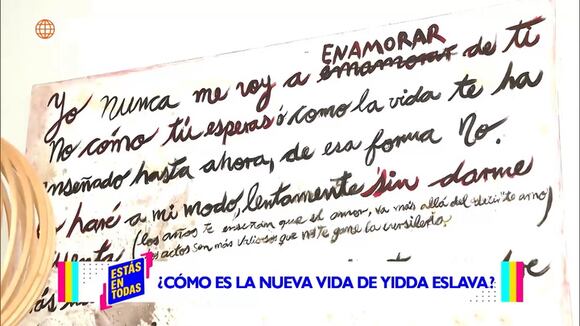 ENAMORAR
Yo nunca me voy a enamorar de ti
No cómo tú esperas ó como la vida te ha
enseñado hasta ahora, de esa forma No.
haré a mi modo, lentamente sin darme
(los años te enseñan que el amor, va más allá del decir te amo)
actos son más valiosos que no te gane la cursilería.
ESTÁS
EN
TODAS
¿CÓMO ES LA NUEVA VIDA DE YIDDA ESLAVA?